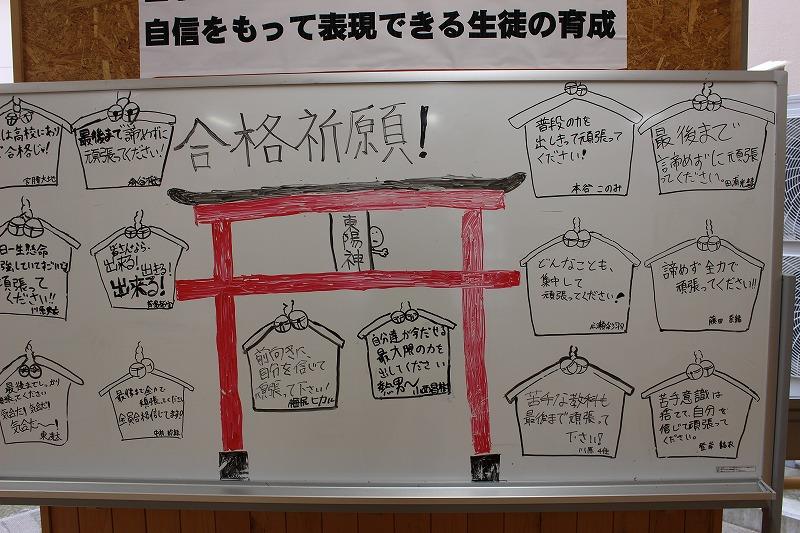 自信をもって表現できる生徒の育成
合格祈願!
東陽神
は高校にあり
合格じゃ!
最後まで諦めずに
頑張ってください!
普段の力を
出しきって頑張って
ください!
本谷 このみ
最後まで
諦めずに頑張っ
てください。
一生懸命
頑張って
ください!!
皆さんなら、
出来る! 出来る!
出来る!
どんなことも、
集中して
頑張ってください!
諦めず全力で
頑張ってください!!
藤田
前向きに、
自分を信じて
頑張って下さい!
ヒカル
自分達が今だせる
最大限の力を
出してください
熱男〜
小西昌樹
最後までしっかり
頑張ってください
気合だ! 気合だ!
気合だ〜!
最後まで全力で
頑張ってください
全員合格信じてます!!
中村
苦手な教科も
最後まで頑張って
下さい!
川原
苦手意識は
捨てて、自分を
信じて頑張って
ください。